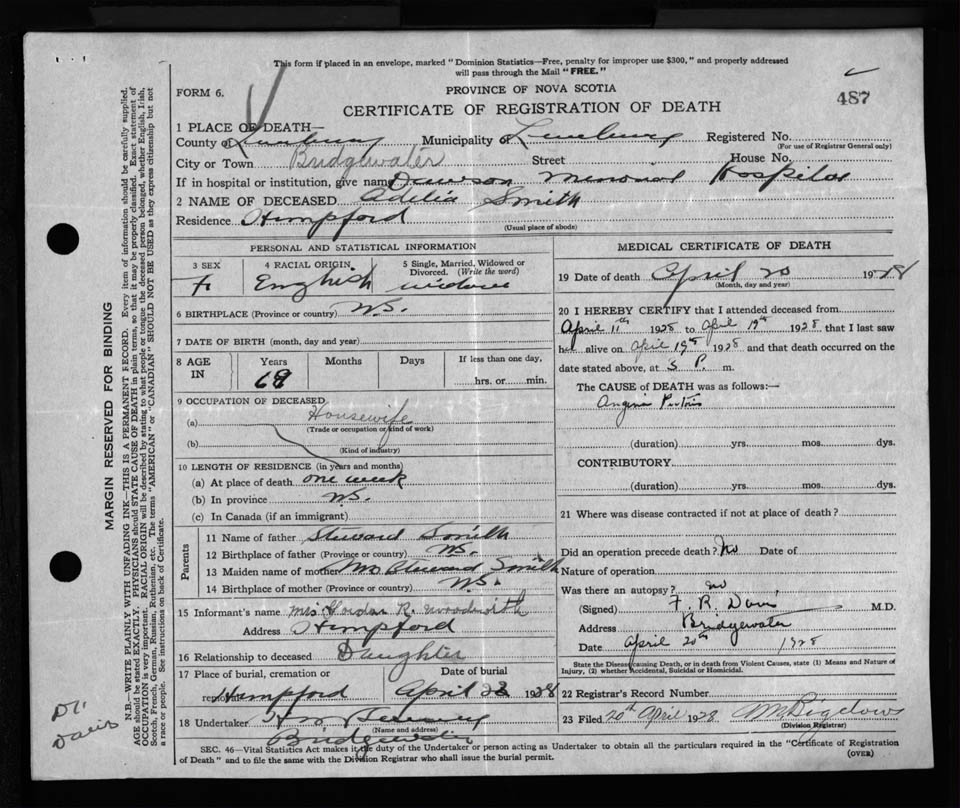 This form if placed in an envelope, marked "Dominion Statistics—Free, penalty for improper use $300," and properly addressed
will pass through the Mail "FREE."
FORM 6.
PROVINCE OF NOVA SCOTIA
CERTIFICATE OF REGISTRATION OF DEATH
487
1 PLACE OF DEATH—
County of Lunenburg Municipality of Lunenburg Registered No.
(For use of Registrar General only)
City or Town Bridgewater Street House No.
If in hospital or institution, give name Dawson Memorial Hospital
2 NAME OF DECEASED Adelia Smith
Residence Hempford
(Usual place of abode)
PERSONAL AND STATISTICAL INFORMATION
3 SEX 4 RACIAL ORIGIN 5 Single, Married, Widowed or Divorced. (Write the word)
F. English widow
6 BIRTHPLACE (Province or country) N.S.
7 DATE OF BIRTH (month, day and year)
8 AGE IN Years Months Days If less than one day,
69 hrs. or min.
9 OCCUPATION OF DECEASED
(a) Housewife
(Trade or occupation or kind of work)
(b)
(Kind of industry)
10 LENGTH OF RESIDENCE (in years and months)
(a) At place of death one week
(b) In province N.S.
(c) In Canada (if an immigrant)
Parents
11 Name of father Steward Smith
12 Birthplace of father (Province or country) N.S.
13 Maiden name of mother Mrs Steward Smith
14 Birthplace of mother (Province or country) N.S.
15 Informant's name Mrs R.
Address Hempford
16 Relationship to deceased Daughter
17 Place of burial, cremation or Date of burial
Hempford April 22 1928
18 Undertaker
(Name and address)
Bridgewater
MEDICAL CERTIFICATE OF DEATH
19 Date of death April 20 1928
(Month, day and year)
20 I HEREBY CERTIFY that I attended deceased from
April 11th 1928 to April 19th 1928 that I last saw
her alive on April 19th 1928 and that death occurred on the
date stated above, at P. m.
The CAUSE of DEATH was as follows:—
Angina
(duration) yrs. mos. dys.
CONTRIBUTORY
(duration) yrs. mos. dys.
21 Where was disease contracted if not at place of death?
Did an operation precede death? No Date of
Nature of operation
Was there an autopsy? no
(Signed) F. R. Davis M.D.
Address Bridgewater
Date April 20th 1928
State the Disease causing Death, or in death from Violent Causes, state (1) Means and Nature of
Injury, (2) whether Accidental, Suicidal or Homicidal.
22 Registrar's Record Number
23 Filed 20th April 1928 Bigelow
(Division Registrar)
SEC. 46—Vital Statistics Act makes it the duty of the Undertaker or person acting as Undertaker to obtain all the particulars required in the "Certificate of Registration
of Death" and to file the same with the Division Registrar who shall issue the burial permit.
(OVER)
MARGIN RESERVED FOR BINDING
N.B.—WRITE PLAINLY WITH UNFADING INK—THIS IS A PERMANENT RECORD. Every item of information should be carefully supplied.
AGE should be stated EXACTLY. PHYSICIANS should STATE CAUSE OF DEATH in plain terms, so that it may be properly classified. Exact statement of
OCCUPATION is very important. RACIAL ORIGIN will be described by stating to what people or tongue the deceased person belonged, whether English, Irish,
Scotch, French, German, Russian, Ruthenian, etc. The terms "AMERICAN" or "CANADIAN" SHOULD NOT BE USED as they express citizenship but not
a race or people. See instructions on back of Certificate.
Dr.
Davis